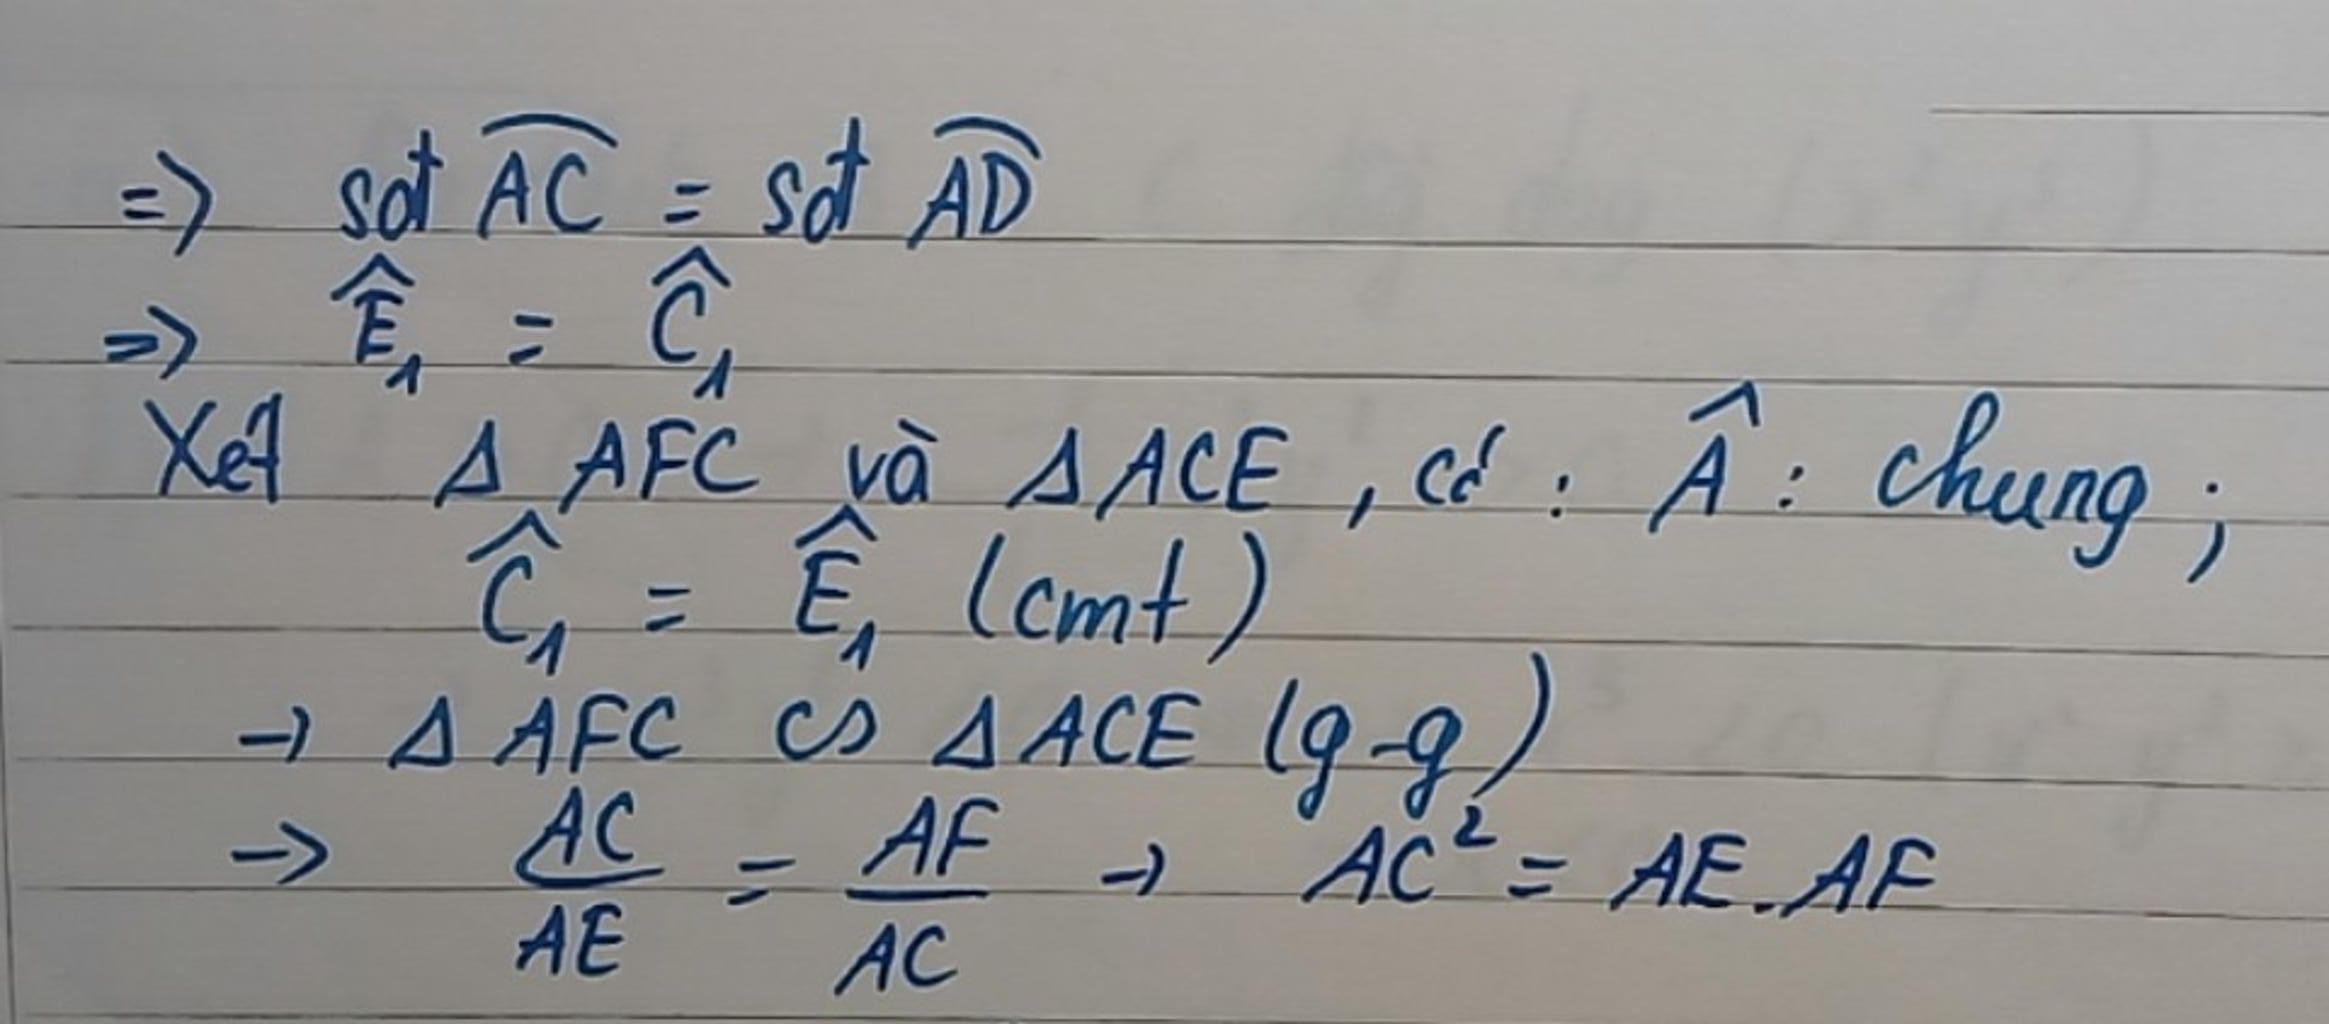 => sđt \widehat{AC} = sđt \widehat{AD}
=> \widehat{E}₁ = \widehat{C}₁
Xét Δ AFC và Δ ACE , có : \widehat{A} : chung ;
\widehat{C}₁ = \widehat{E}₁ (cmt)
→ Δ AFC ∽ Δ ACE (g-g)
→ AC/AE = AF/AC → AC² = AE.AF